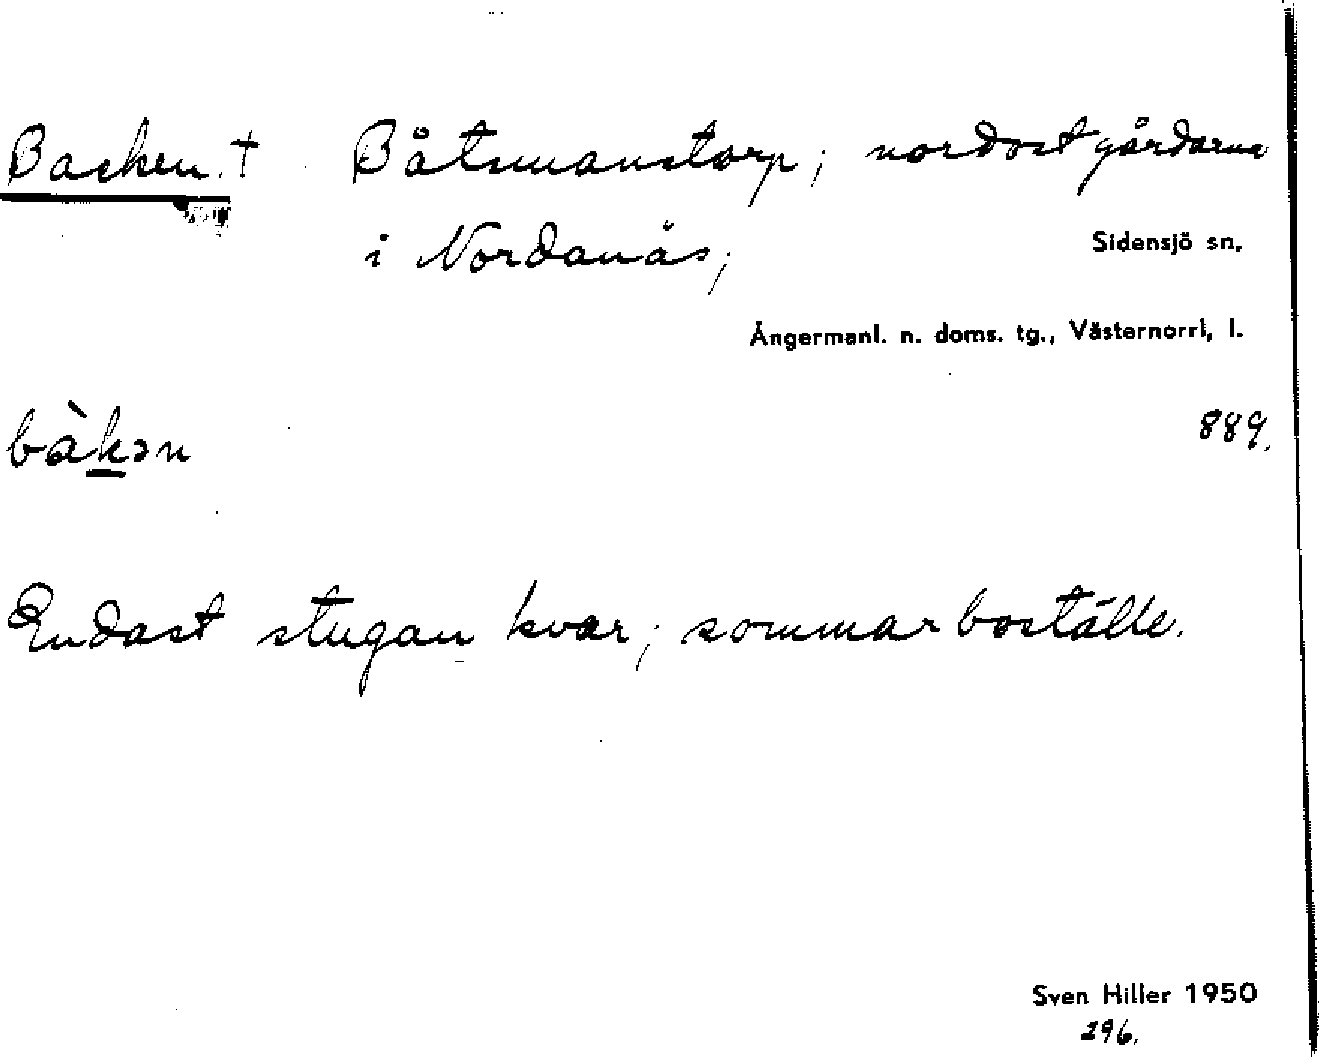 Backen. † Båtsmanstorp; nordost gårdarna
i Nordanås;
Sidensjö sn.
Ångermanl. n. doms. tg., Västernorrl. l.
bàkən
889.
Endast stugan kvar; sommarboställe.
Sven Hiller 1950
296.